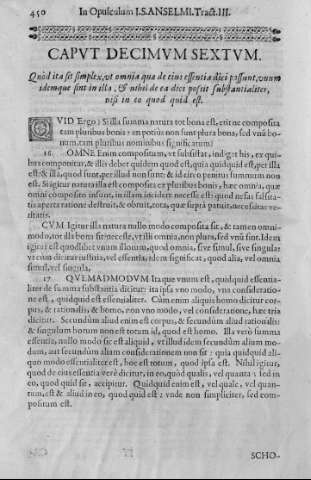 450 In Opusculum I.S. ANSELMI. Tract. III.
CAPVT DECIMVM SEXTVM.
Quòd ita sit simplex, vt omnia quæ de eius essentia dici possunt, vnum
idemque sint in illa, & nihil de ea dici possit substantialiter,
nisi in eo quod quid est.
QVID Ergo; Si illa summa natura tot bona est, erit ne composita
tam pluribus bonis: an potiùs non sunt plura bona, sed vnũ bo-
num, tam pluribus nominibus significatum?
16. OMNE Enim compositum, vt subsistat, indiget his, ex qui-
bus componitur, & illis debet quidem quod est, quia quidquid est, per illa
est: & illa, quod sunt, per illud non sunt: & idcirco penitus summum non
est. Si igitur natura illa est composita ex pluribus bonis, hæc omnia, quæ
omni composito insunt, in illam incidere necesse est: quod nefas falsita-
tis aperta ratione destruit, & obruit, tota, quæ suprà patuit, necessitas ve-
ritatis.
CVM Igitur illa natura nullo modo composita sit, & tamen omni-
modo, tot illa bona sit, necesse est, vt illa omnia, non plura, sed vnũ sint. Idem
igitur est quodlibet vnum illorum, quod omnia, siue simul, siue singula:
vt cum dicitur iustitia, vel essentia, idem significat, quod alia, vel omnia
simul, vel singula.
17. QVEMADMODVM Itaque vnum est, quidquid essentia-
liter de summa substantia dicitur: ita ipsa vno modo, vna consideratio-
ne est, quidquid est essentialiter. Cùm enim aliquis homo dicitur cor-
pus, & rationalis, & homo, non vno modo, vel consideratione, hæc tria
dicitur. Secundum aliud enim est corpus, & secundum aliud rationalis:
& singulum horum non est totum id, quod est homo. Illa verò summa
essentia, nullo modo sic est aliquid, vt illud idem secundùm alium mo-
dum, aut secundum aliam considerationem non sit: quia quidquid ali-
quo modo essentialiter est, hoc est totum, quod ipsa est. Nihil igitur,
quod de eius essentia verè dicitur, in eo, quòd qualis, vel quanta; sed in
eo, quod quid sit, accipitur. Quidquid enim est, vel quale, vel quan-
tum, est & aliud in eo, quod quid est: vnde non simpliciter, sed com-
positum est.
SCHO-